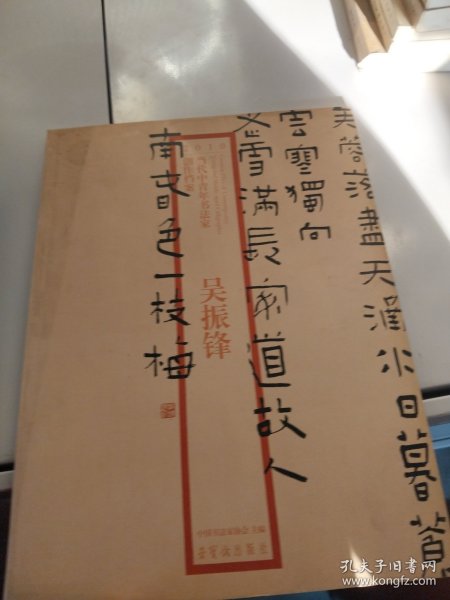 芙蓉落尽天涵水日暮
雲寒獨向
雪滿長
道故人
南
色一枝梅
2010
当代中青年书法家
创作档案
吴振锋
中国书法家协会 主编
荣宝斋出版社
孔夫子旧书网
www.kongfz.com